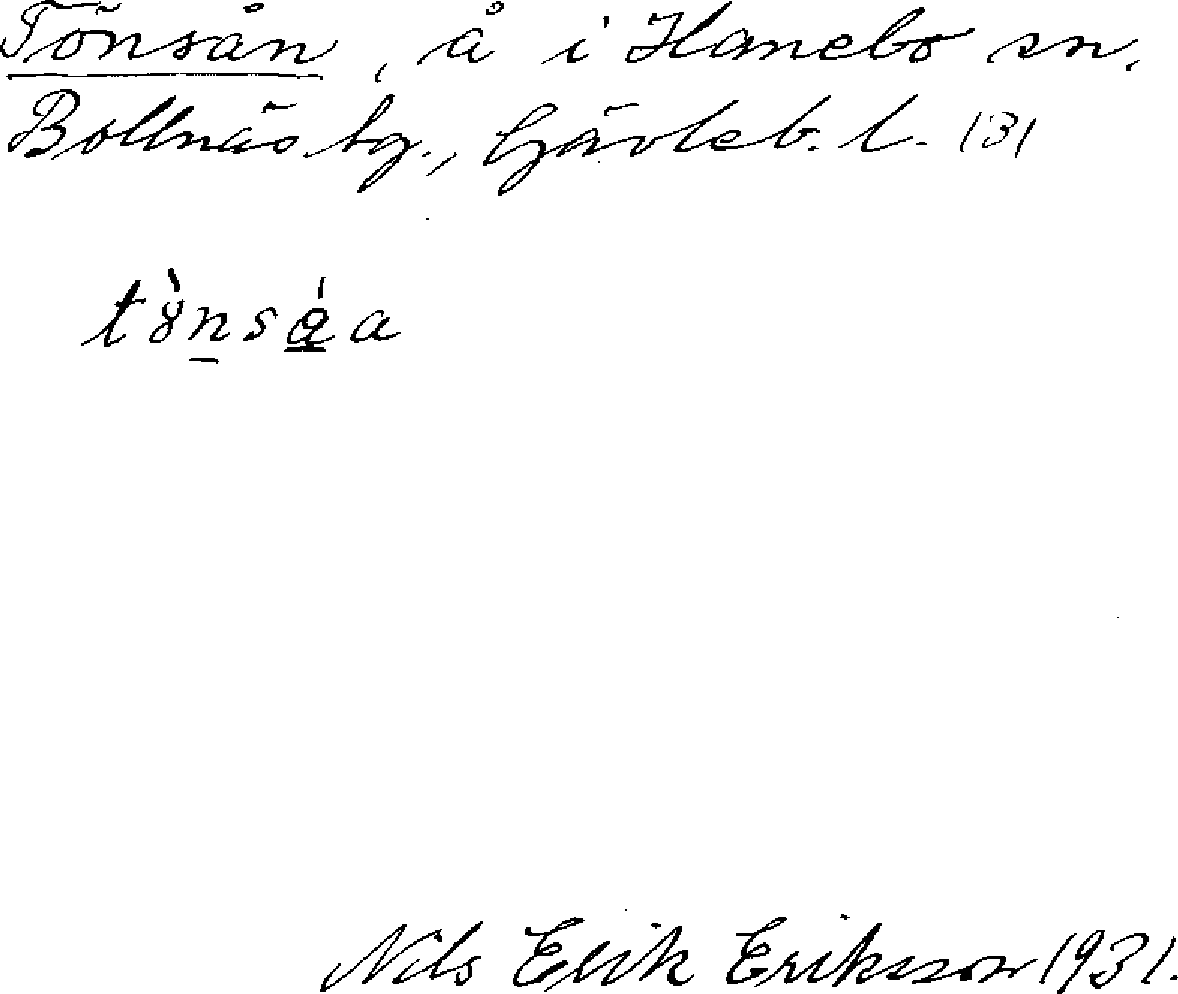 Tönsån, å i Hanebo sn.
Bollnäs tg., Gävleb. l. 131
Nils Erik Eriksson 1931.